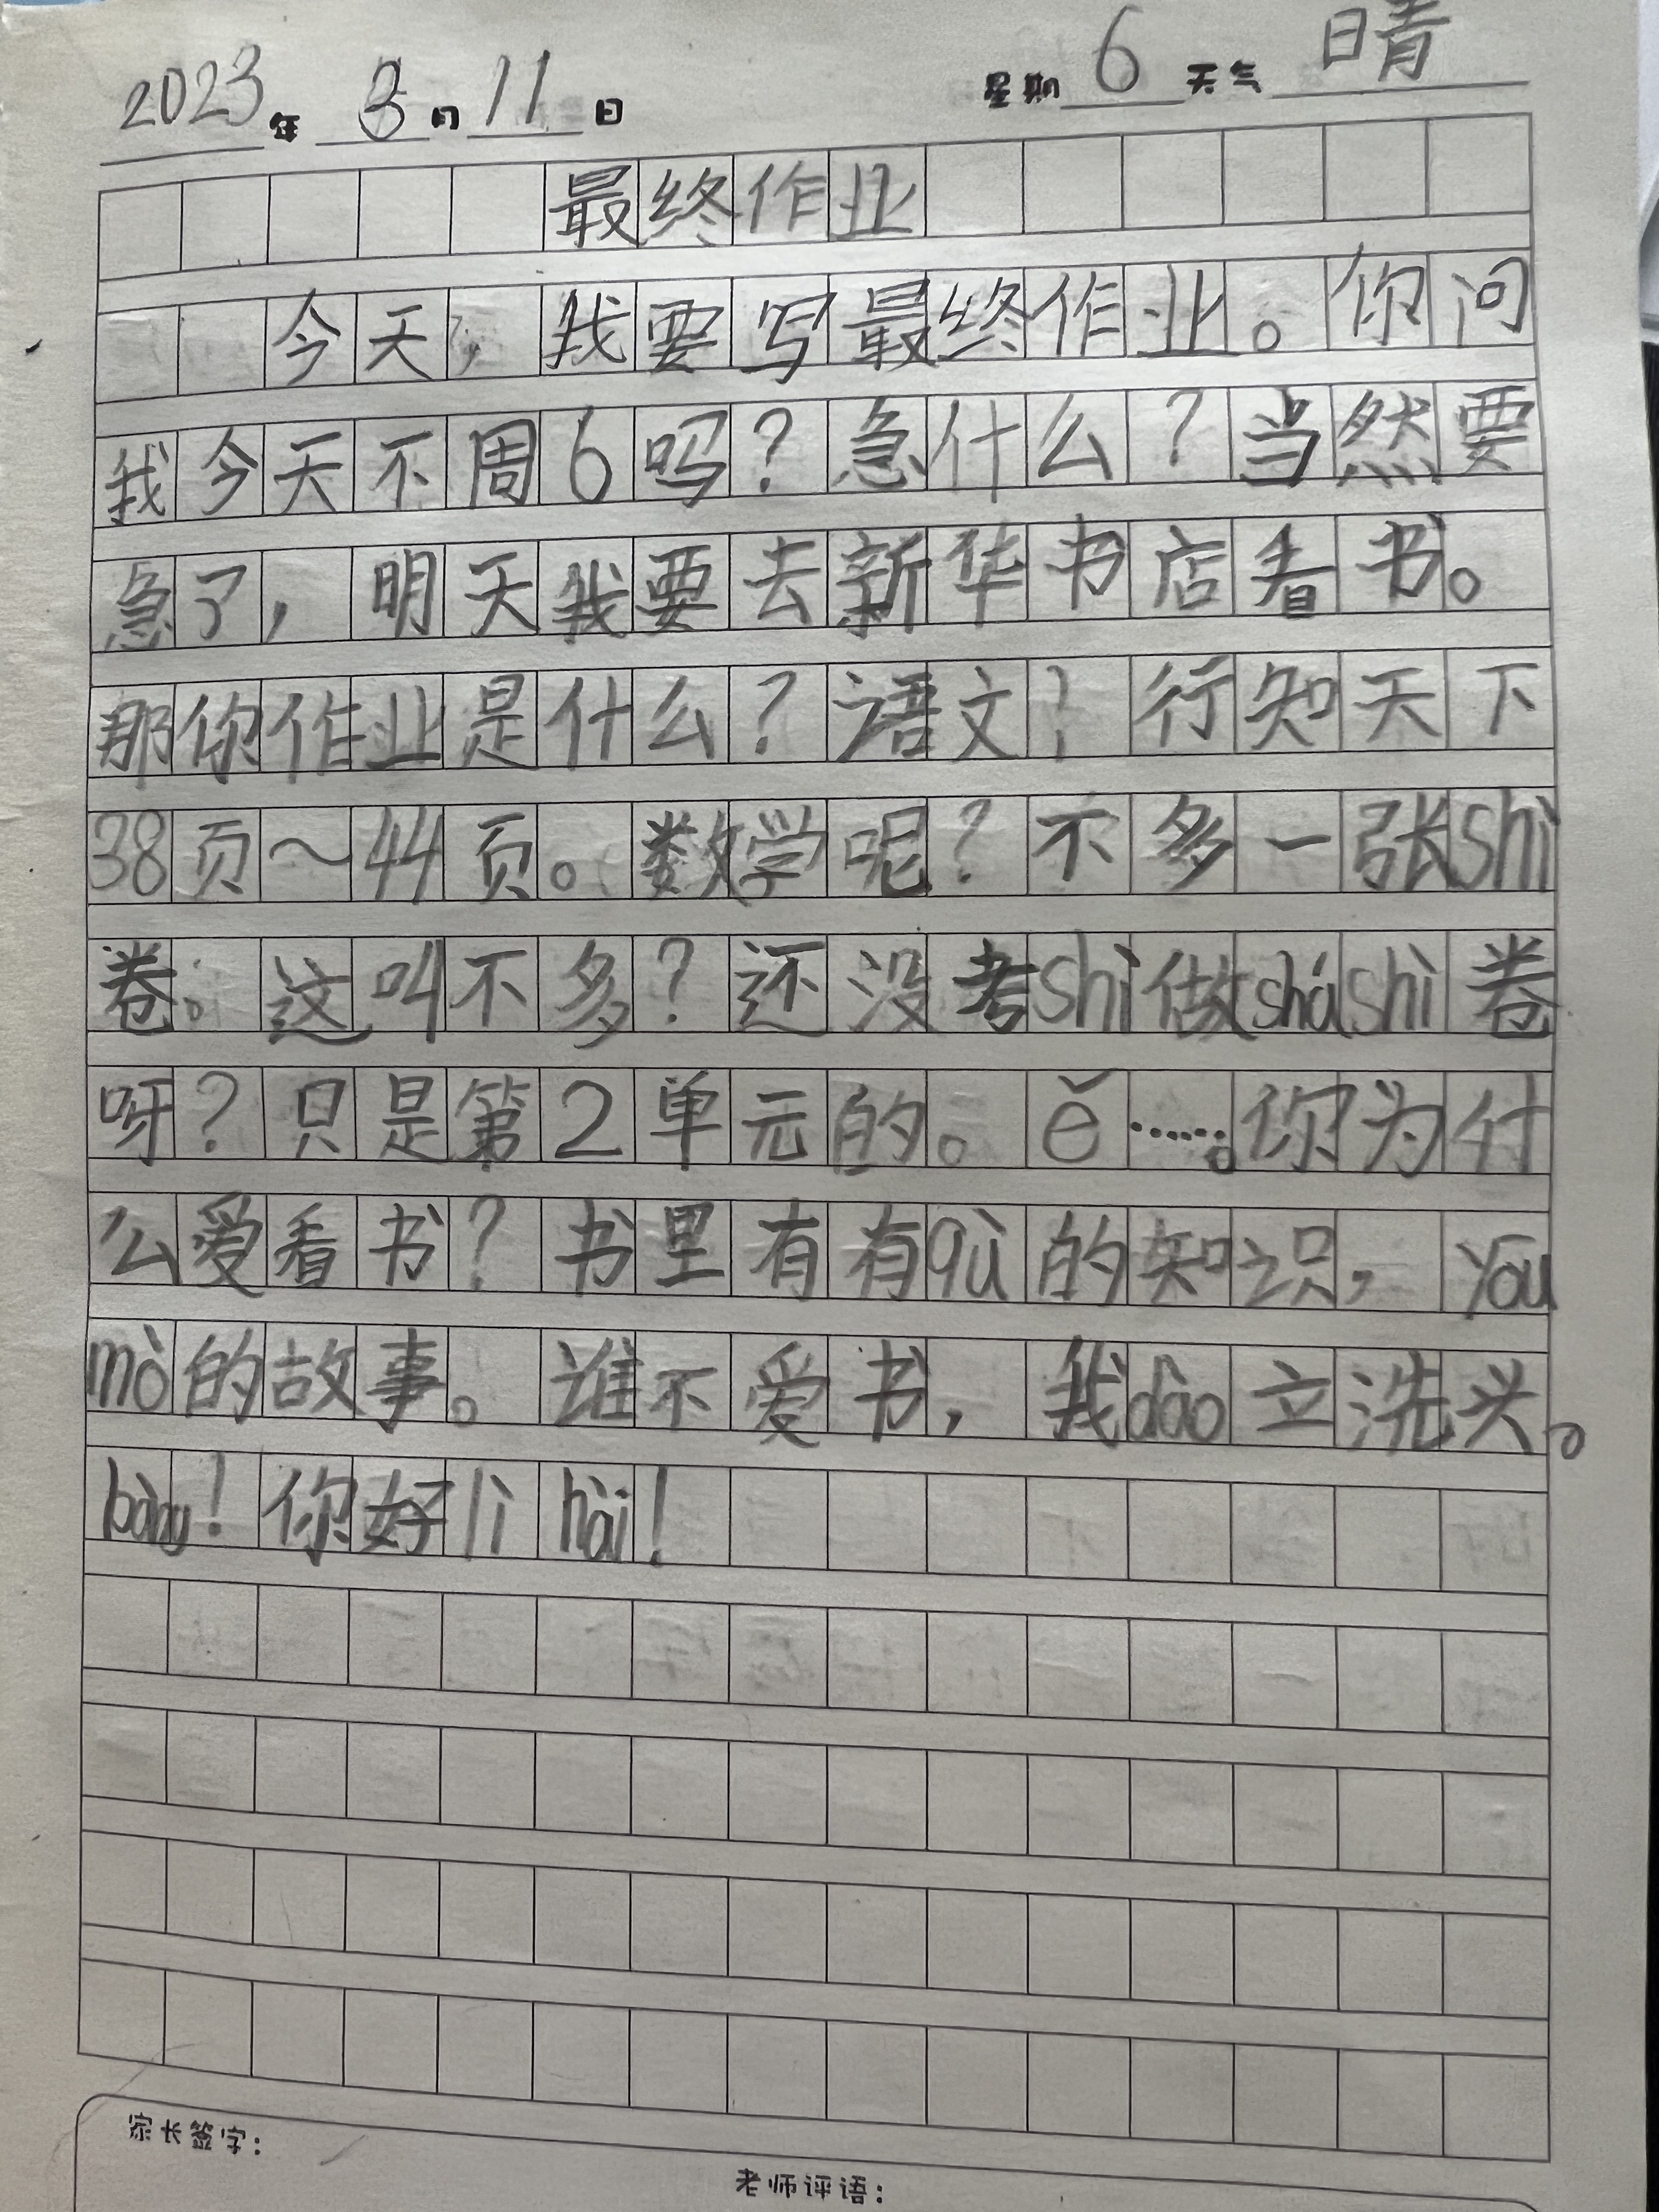 2023年 3月 11日 星期 6 天气 晴
最终作业
今天，我要写最终作业。你问
我今天不周6吗？急什么？当然要
急了，明天我要去新华书店看书。
那你作业是什么？语文？行知天下
38页～44页。数学呢？不多一张shì
卷。这叫不多？还没考shì做sháshì卷
呀？只是第2单元的。ě……。你为什
么爱看书？书里有有qù的知识，yōu
mò的故事。谁不爱书，我dào立洗头。
你好lì hài！
家长签字：
老师评语：